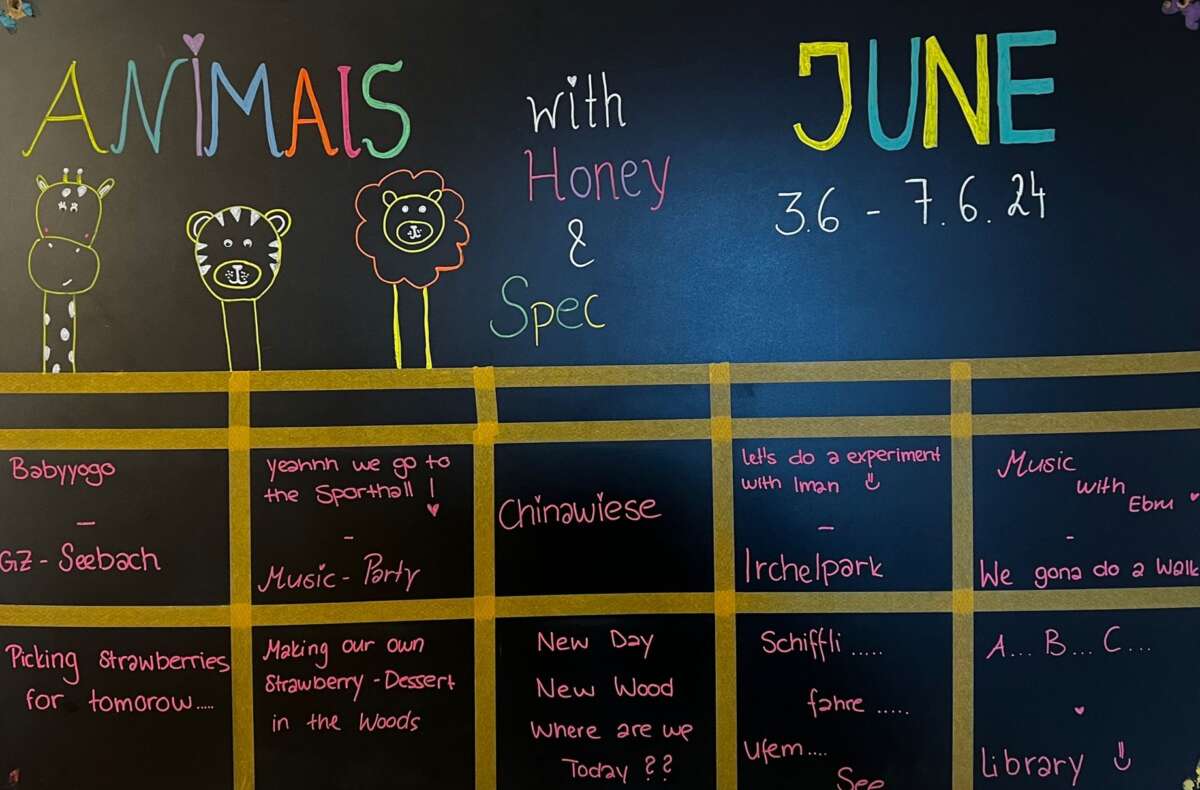 ANIMALS
with
Honey
&
Spec
JUNE
3.6 - 7.6.24
Babyyogo
-
GZ - Seebach
yeahhh we go to
the Sporthall !
-
Music - Party
Chinawiese
let's do a experiment
with Iman
-
Irchelpark
Music
with
Ebru
-
We gona do a Walk
Picking Strawberries
for tomorow.....
Making our own
Strawberry - Dessert
in the Woods
New Day
New Wood
Where are we
Today ??
Schiffli .....
fahre .....
Ufem....
See
A... B... C...
Library